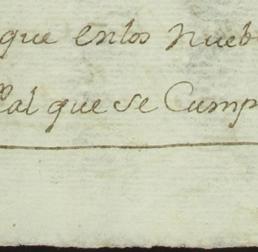 que enlos nueb
al que se Cump